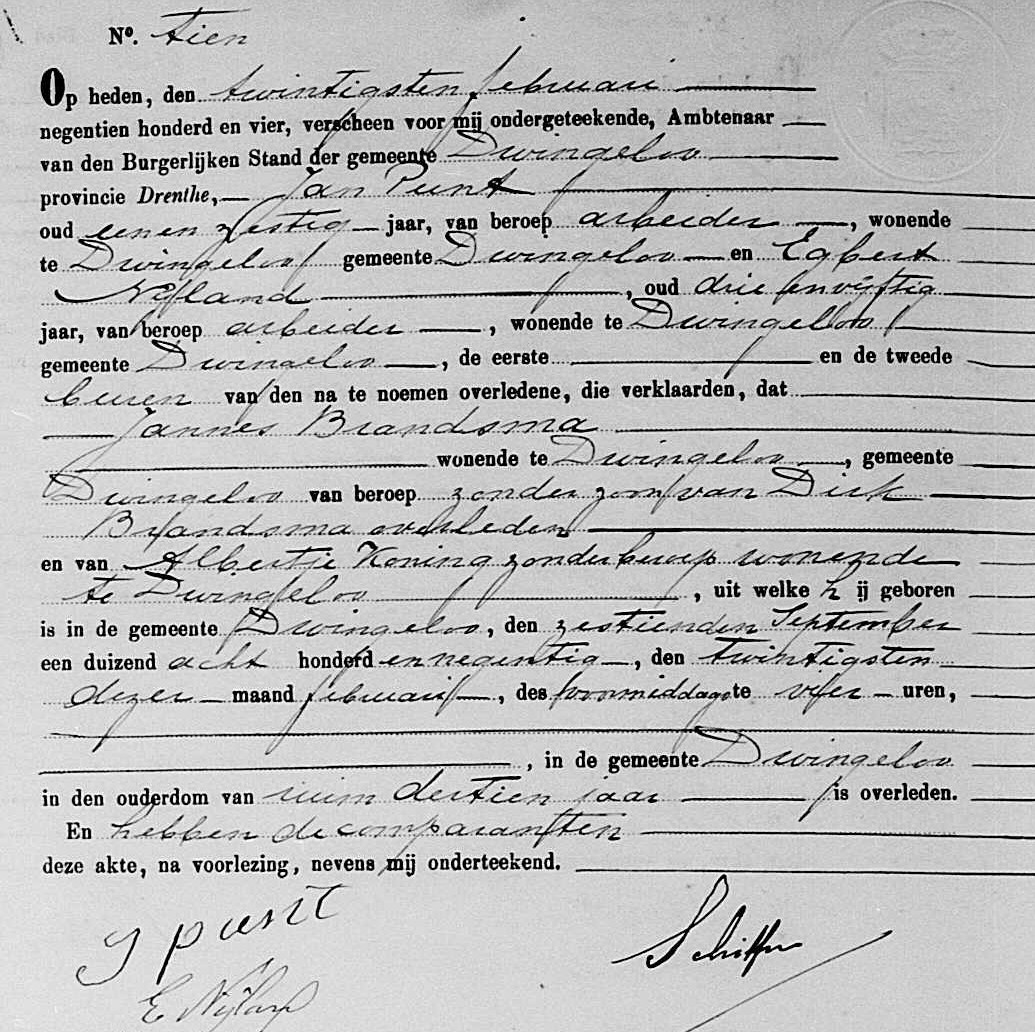 Nº. Tien
Op heden, den twintigsten februari
negentien honderd en vier, verscheen voor mij ondergeteekende, Ambtenaar
van den Burgerlijken Stand der gemeente Dwingeloo
provincie Drenthe, Jan Punt
oud eenen zestig jaar, van beroep arbeider, wonende
te Dwingeloo gemeente Dwingeloo en Egbert
Nijland, oud drie en vijftig
jaar, van beroep arbeider, wonende te Dwingeloo
gemeente Dwingeloo, de eerste en de tweede
buren van den na te noemen overledene, die verklaarden, dat
Jannes Brandsma
wonende te Dwingeloo, gemeente
Dwingeloo van beroep zonder zoon van Dirk
Brandsma overleden
en van Albertje Koning zonder beroep wonende
te Dwingeloo, uit welke h ij geboren
is in de gemeente Dwingeloo, den zestienden September
een duizend acht honderd en negentig, den twintigsten
dezer maand februari, des voormiddags te vijf uren,
, in de gemeente Dwingeloo
in den ouderdom van ruim dertien jaar is overleden.
En hebben de comparanten
deze akte, na voorlezing, nevens mij onderteekend.
J punt
E Nijland